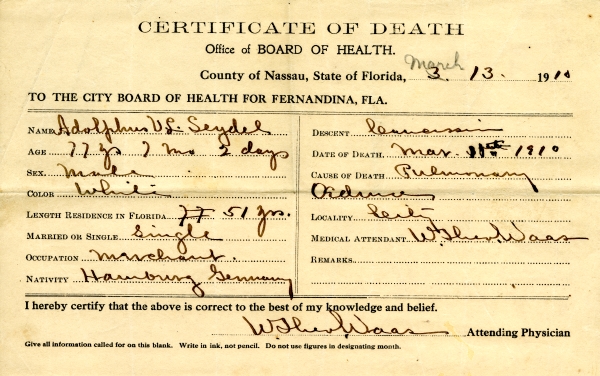 CERTIFICATE OF DEATH
Office of BOARD OF HEALTH.
March
County of Nassau, State of Florida, 3. 13. 1910
TO THE CITY BOARD OF HEALTH FOR FERNANDINA, FLA.
NAME Adolphus V. L. Seydel
AGE 77 yrs 7 mo 2 days
SEX Male
COLOR White
LENGTH RESIDENCE IN FLORIDA 77 51 yrs.
MARRIED OR SINGLE Single
OCCUPATION Merchant.
NATIVITY Hamburg Germany
DESCENT Caucasian
DATE OF DEATH Mar. 11st 1910
CAUSE OF DEATH Pulmonary
Oedema
LOCALITY City
MEDICAL ATTENDANT W. Theo. Waas
REMARKS
I hereby certify that the above is correct to the best of my knowledge and belief.
W. Theo. Waas Attending Physician
Give all information called for on this blank. Write in ink, not pencil. Do not use figures in designating month.